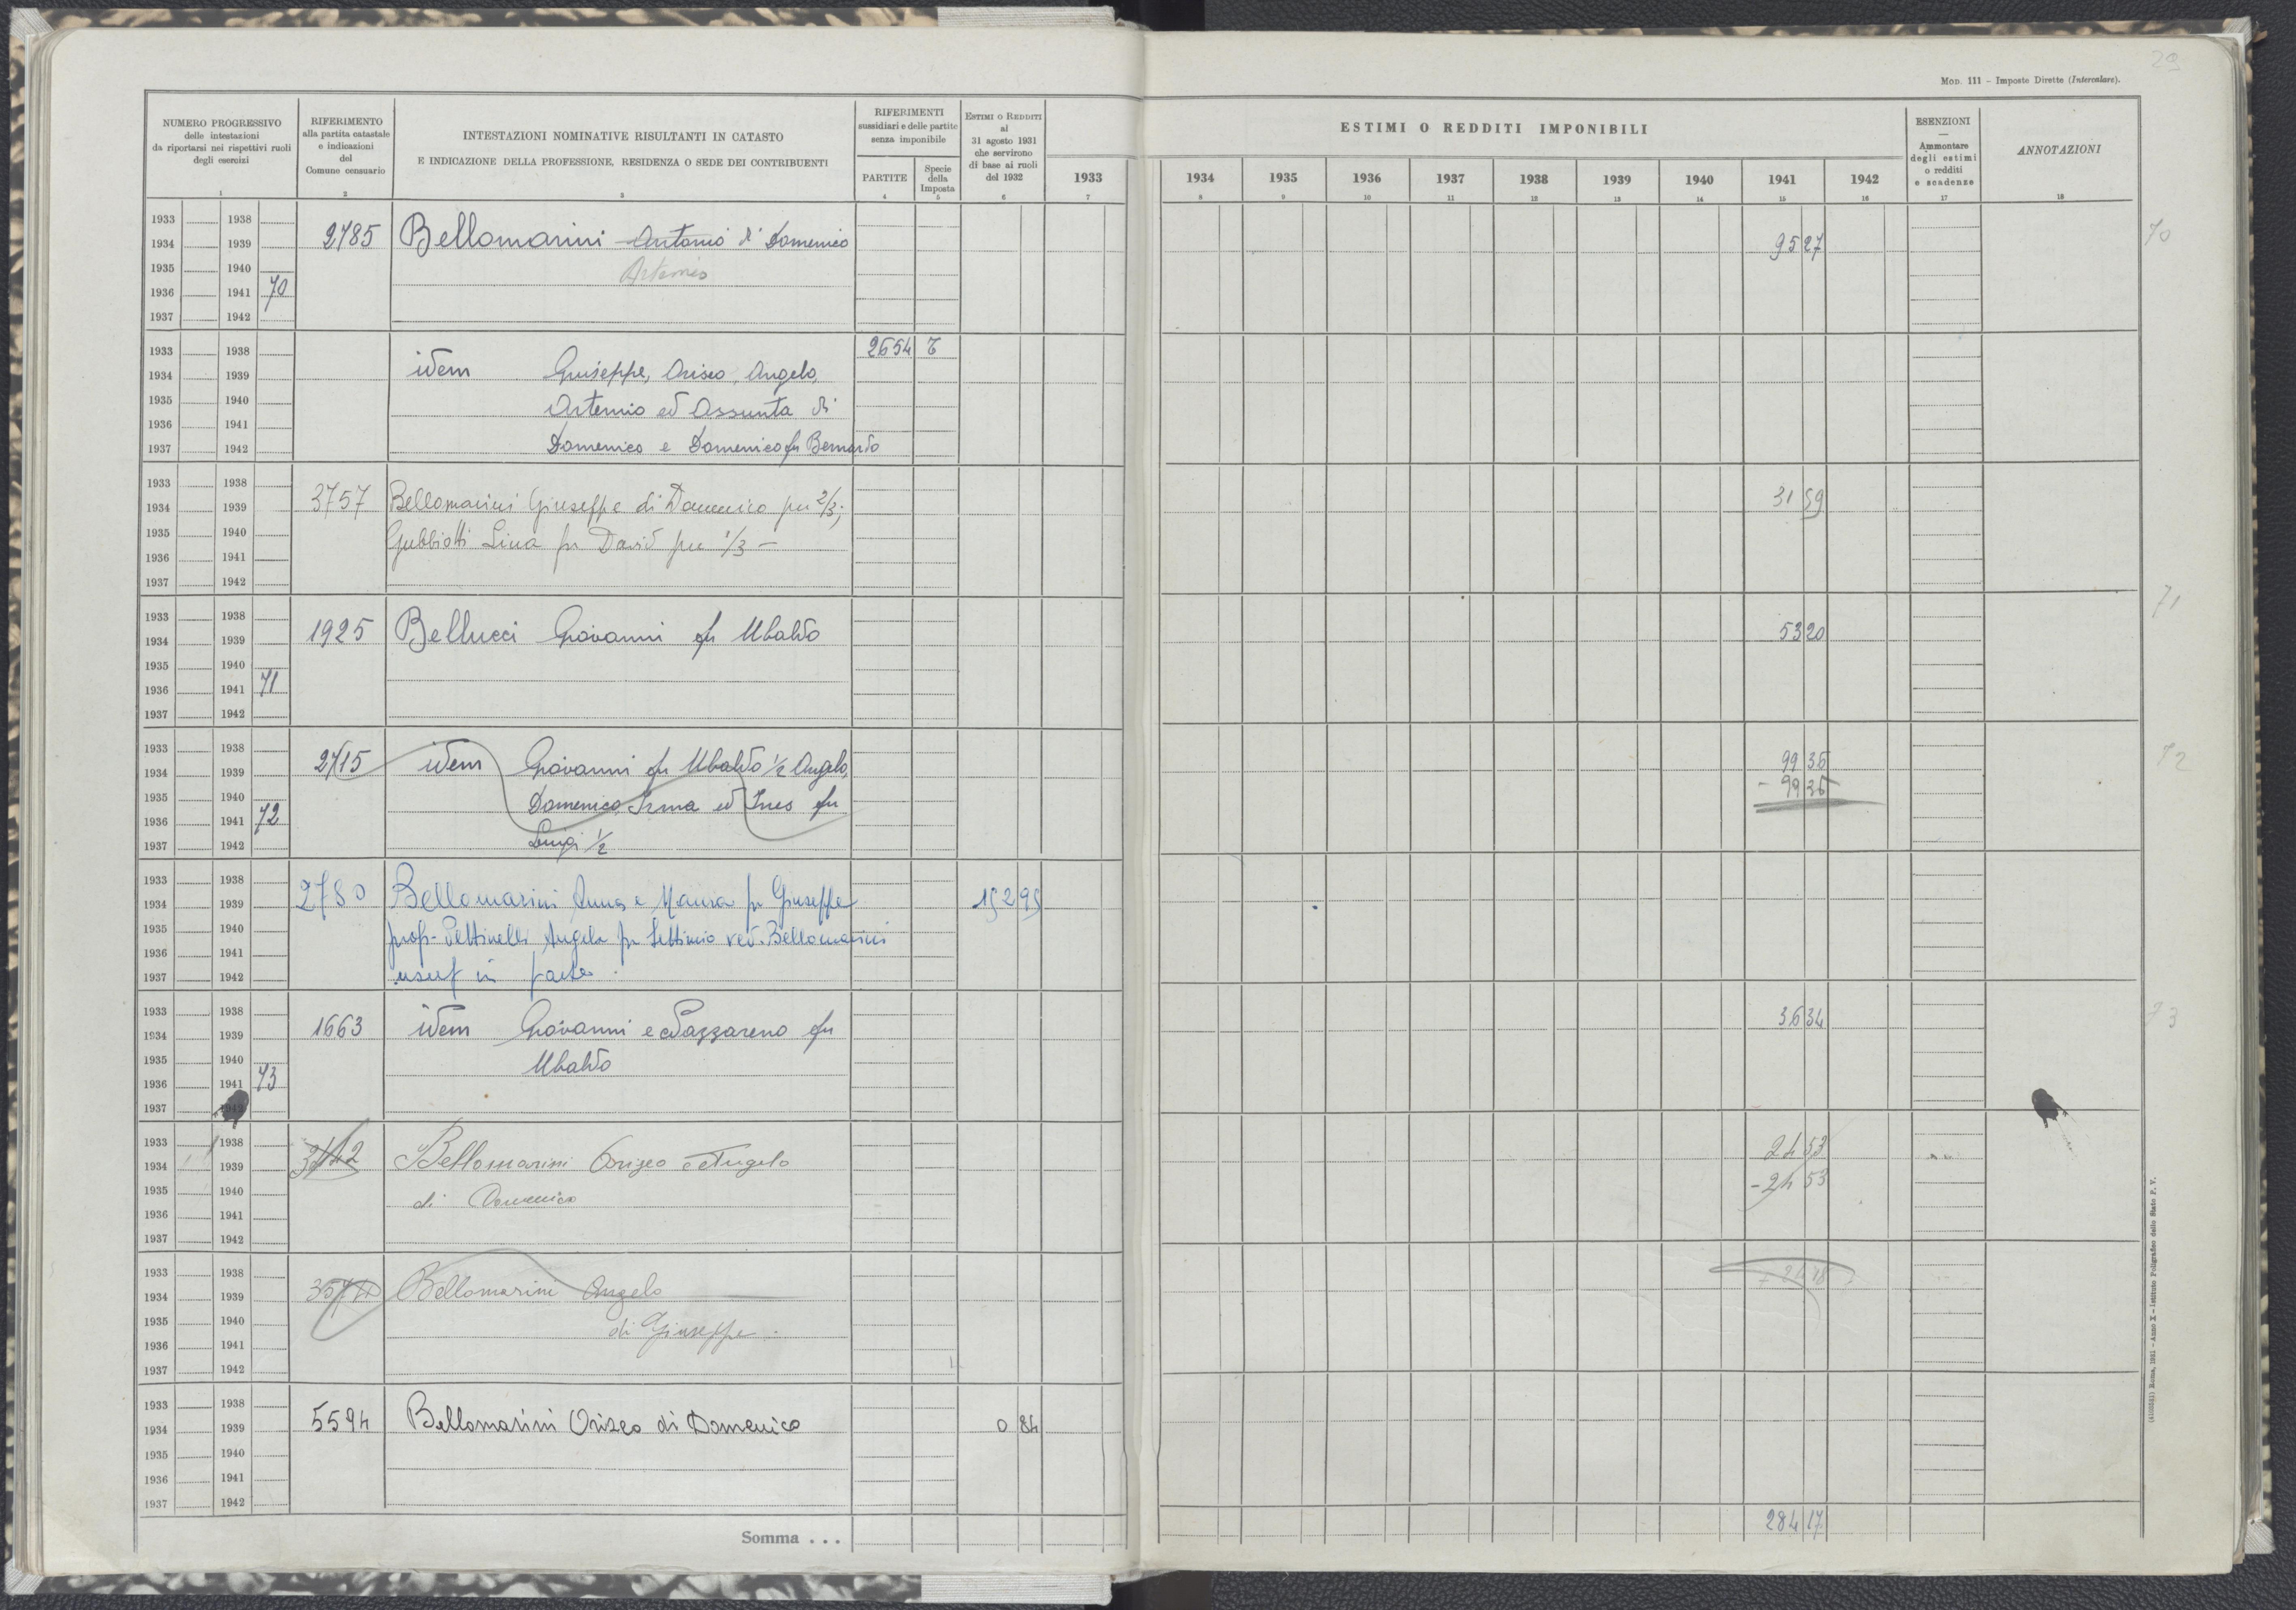 29
MOD. 111 – Imposte Dirette (Intercalare).
NUMERO PROGRESSIVO
delle intestazioni
da riportarsi nei rispettivi ruoli
degli esercizi
1
RIFERIMENTO
alla partita catastale
e indicazioni
del
Comune censuario
2
INTESTAZIONI NOMINATIVE RISULTANTI IN CATASTO
E INDICAZIONE DELLA PROFESSIONE, RESIDENZA O SEDE DEI CONTRIBUENTI
3
RIFERIMENTI
sussidiari e delle partite
senza imponibile
PARTITE
4
Specie
della
Imposta
5
ESTIMI O REDDITI
al
31 agosto 1931
che servirono
di base ai ruoli
del 1932
6
1933
7
ESTIMI O REDDITI IMPONIBILI
1934 1935 1936 1937 1938 1939 1940 1941 1942
8 9 10 11 12 13 14 15 16
ESENZIONI
—
Ammontare
degli estimi
o redditi
e scadenze
17
ANNOTAZIONI
18
1933 1938
1934 1939 2785 Bellomarini Antonio di Domenico 95 27 70
1935 1940 Artemio
1936 1941 70
1937 1942
1933 1938 2654 T
1934 1939 idem Giuseppe, Oriseo, Angelo,
1935 1940 Artemio ed Assunta di
1936 1941
1937 1942 Domenico e Domenico fu Bernardo
1933 1938
1934 1939 3757 Bellomarini Giuseppe di Domenico per 2/3; 31 59
1935 1940 Gubbiotti Lina fu David per 1/3 –
1936 1941
1937 1942
1933 1938 71
1934 1939 1925 Bellucci Giovanni fu Ubaldo 53 20
1935 1940
1936 1941 71
1937 1942
1933 1938
1934 1939 2715 idem Giovanni fu Ubaldo 1/2 Angelo, 99 36 72
1935 1940 Domenico, Irma ed Ines fu – 99 36
1936 1941 72
1937 1942 Luigi 1/2
1933 1938
1934 1939 2780 Bellomarini Anna e Maura fu Giuseppe 152 95
1935 1940 propr- Pettinelli Angela fu Settimio ved. Bellomarini
1936 1941
1937 1942 usuf in parte.
1933 1938
1934 1939 1663 idem Giovanni e Nazzareno fu 36 34 73
1935 1940 Ubaldo
1936 1941 73
1937 1942
1933 1938
1934 1939 3142 Bellomarini Oriseo e Angelo 24 53
1935 1940 di Domenico – 24 53
1936 1941
1937 1942
1933 1938
1934 1939 Bellomarini Angelo
1935 1940 di Giuseppe.
1936 1941
1937 1942
1933 1938
1934 1939 5594 Bellomarini Oriseo di Domenico 0 84
1935 1940
1936 1941
1937 1942
Somma . . . 284 17
(4100251) Roma, 1931 – Anno X – Istituto Poligrafico dello Stato P. V.